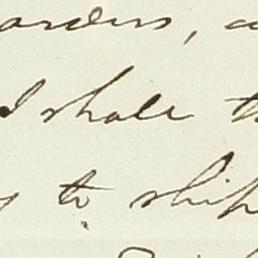 orders, a
I shall t
to ship